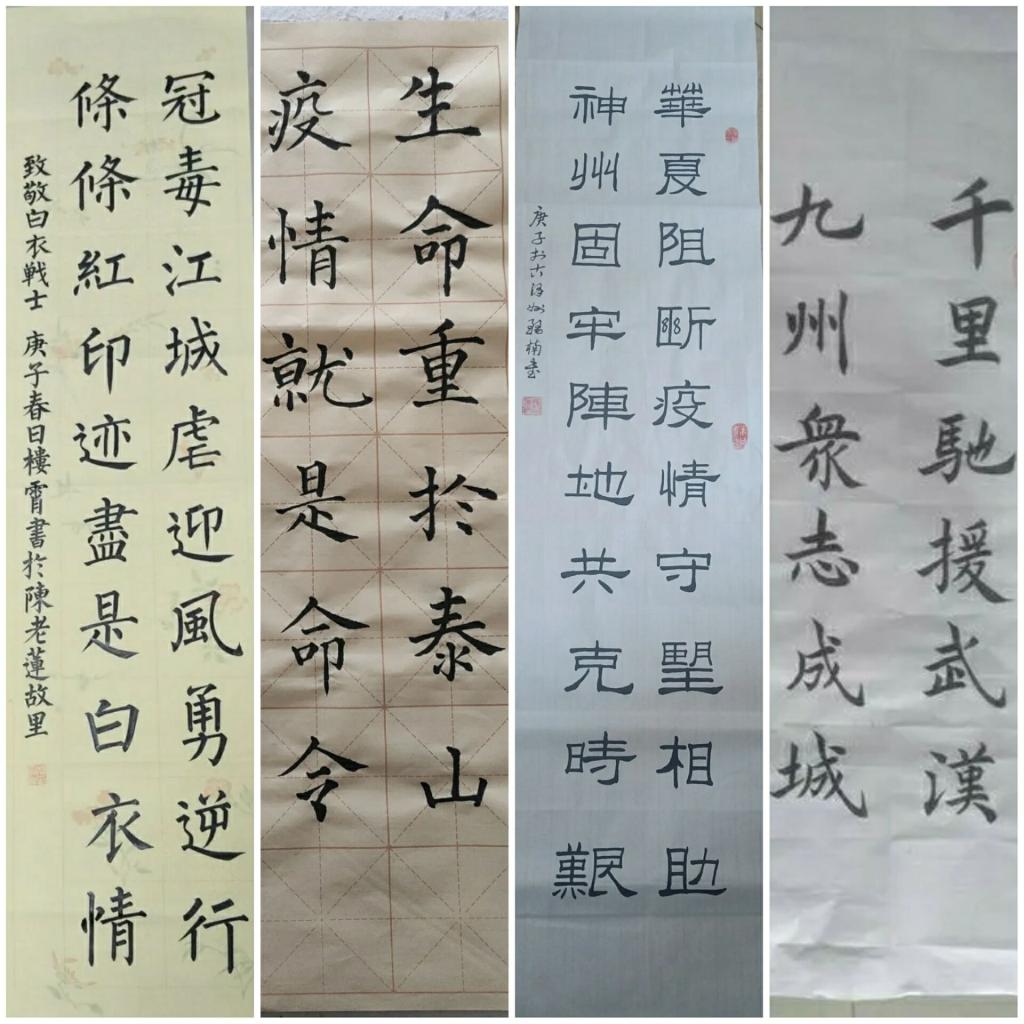 冠毒江城虐迎風勇逆行
條條紅印迹盡是白衣情
致敬白衣戰士 庚子春日樓霄書於陳老蓮故里
生命重於泰山
疫情就是命令
華夏阻斷疫情守朢相助
神州固牢陣地共克時艱
庚子
千里馳援武漢
九州衆志成城